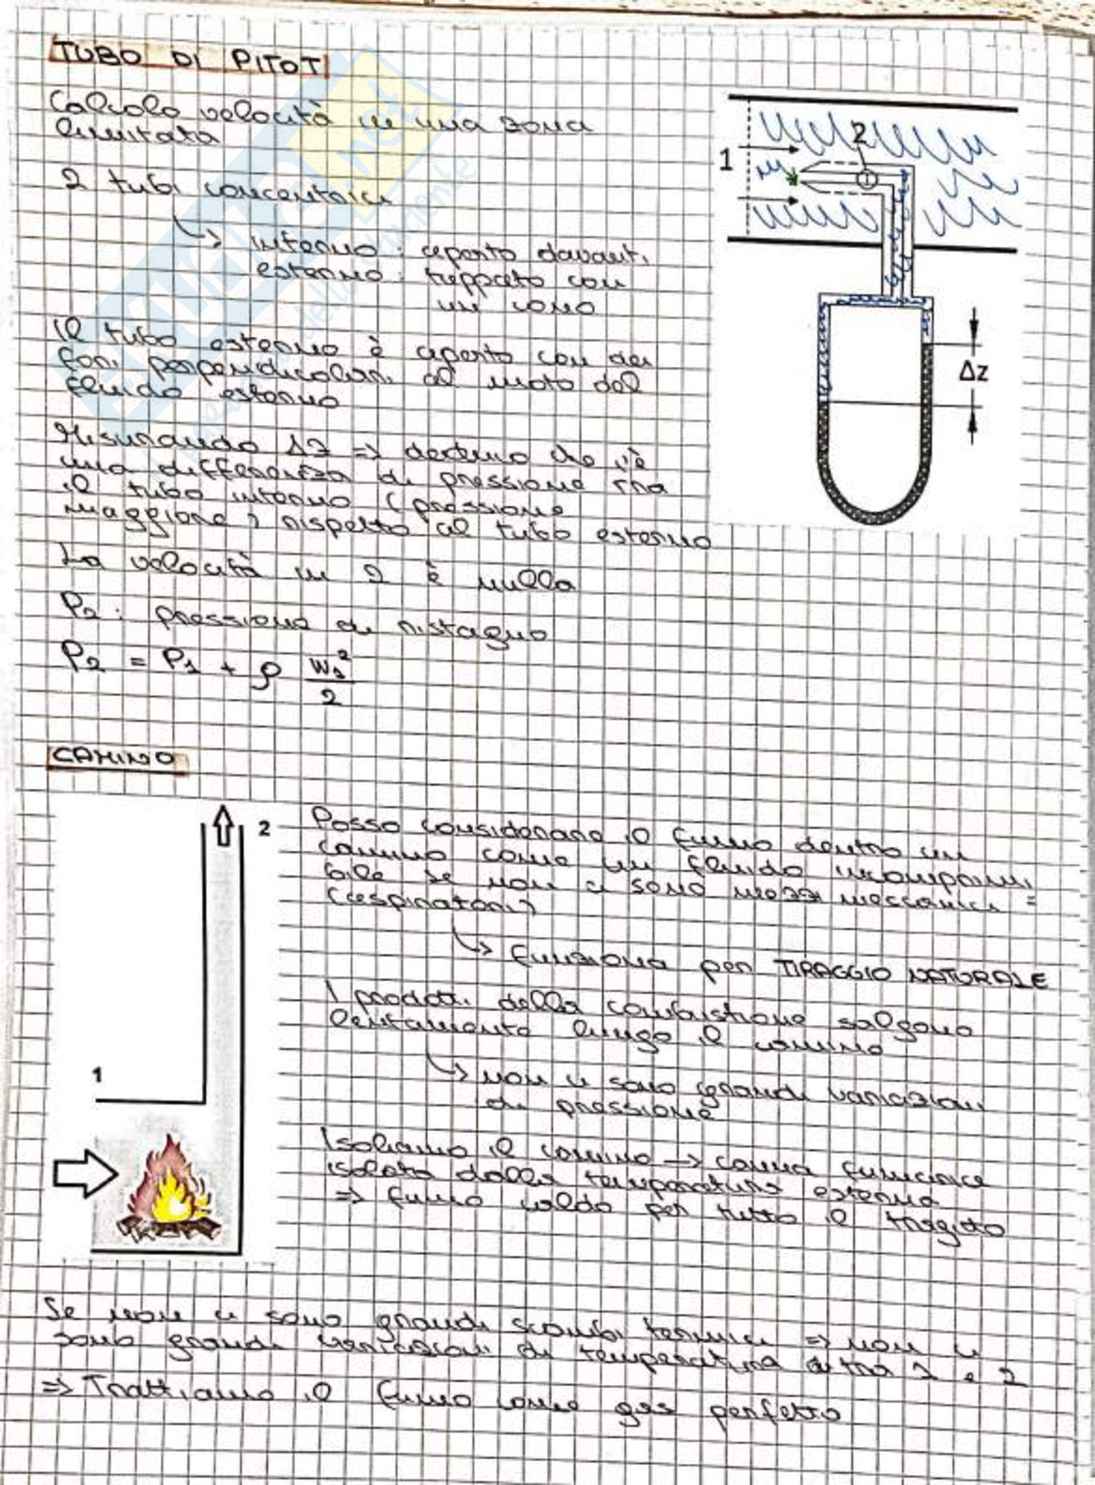 TUBO DI PITOT
Calcolo velocità in una zona
limitata
2 tubi concentrici
↳ interno: aperto davanti
esterno: tappato con
un cono
Il tubo esterno è aperto con dei
fori perpendicolari al moto del
fluido esterno
Misurando Δz => determino che c'è
una differenza di pressione tra
il tubo interno (pressione
maggiore) rispetto al tubo esterno
La velocità in 2 è nulla
P2: pressione di ristagno
P2 = P1 + ρ w1²/2
1
2
Δz
CAMINO
Posso considerare il fumo dentro un
camino come un fluido incomprimi
bile se non ci sono mezzi meccanici =
(aspiratori)
↳ funziona per TIRAGGIO NATURALE
I prodotti della combustione salgono
lentamente lungo il camino
↳ non ci sono grandi variazioni
di pressione
Isoliamo il camino → canna fumaria
isolata dalla temperatura esterna
=> fumo caldo per tutto il tragitto
2
1
Se non ci sono grandi scambi termici => non ci
sono grandi variazioni di temperatura tra 1 e 2
=> Trattiamo il fumo come gas perfetto